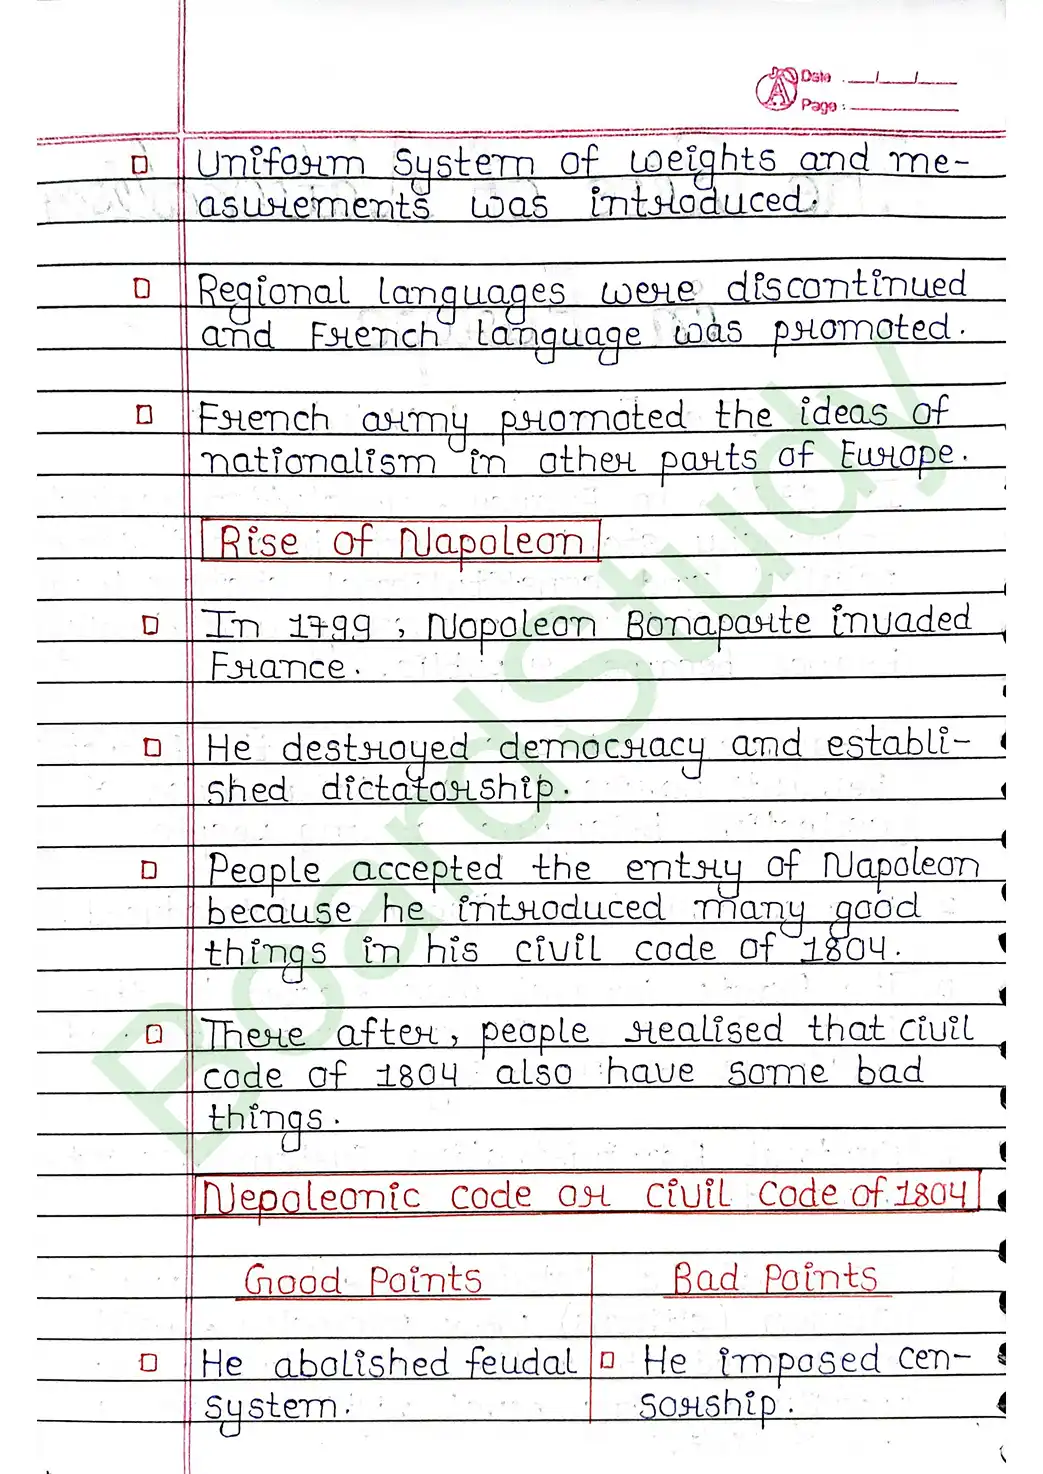 Date : __/__/__
Page : 
Uniform system of weights and me-
asurements was introduced.
Regional languages were discontinued
and French language was promoted.
French army promoted the ideas of
nationalism in other parts of Europe.
Rise of Napoleon
In 1799 , Nopoleon Bonaparte invaded
France.
He destroyed democracy and establi-
shed dictatorship.
People accepted the entry of Napoleon
because he introduced many good
things in his civil code of 1804.
There after, people realised that civil
code of 1804 also have some bad
things.
Nepoleonic code or civil code of 1804
Good Points
Bad Points
He abolished feudal
system.
He imposed cen-
sorship.
BoardStudy